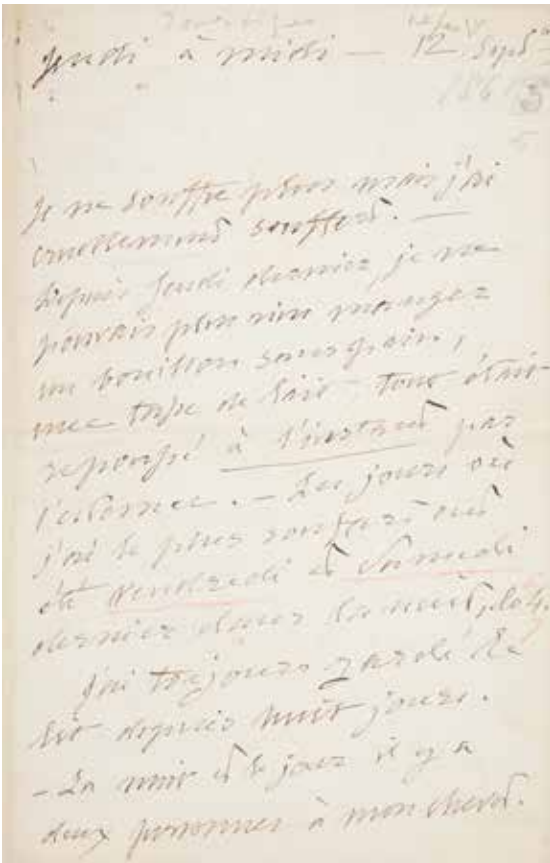 Jeudi à midi — 12 Sept
186
Je ne souffre plus mais j'ai
cruellement souffert. —
Depuis Jeudi dernier, je ne
pouvais plus rien manger
un bouillon sans pain,
une tasse de lait tout était
repoussé à l'instant par
l'estomac. — Les jours où
j'ai le plus souffert ont
été Vendredi et Samedi
dernier dans la nuit,
J'ai toujours gardé le
lit depuis huit jours.
— La nuit et le jour il y a
deux personnes à mon chevet.